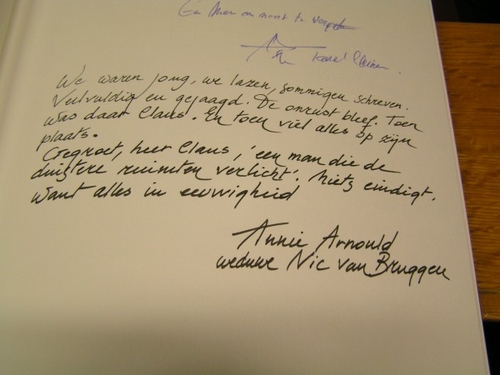 We waren jong, we lazen, sommigen schreven.
Veelvuldig en gejaagd. De onrust bleef. Toen
was daar Claus. En toen viel alles op zijn
plaats.
Gegroet, heer Claus, 'een man die de
duistere ruimten verlicht'. Niets eindigt.
Want alles in eeuwigheid
Annie Arnould
weduwe Nic van Bruggen